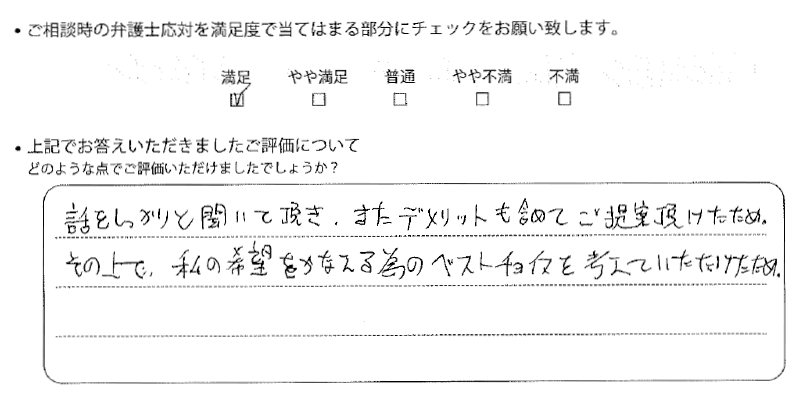 ・ご相談時の弁護士応対を満足度で当てはまる部分にチェックをお願い致します。
満足 やや満足 普通 やや不満 不満
☑ □ □ □ □
・上記でお答えいただきましたご評価について
どのような点でご評価いただけましたでしょうか？
話をしっかりと聞いて頂き、またデメリットも含めてご提案頂けたため。
その上で、私の希望をかなえる為のベストチョイスを考えていただけたため。